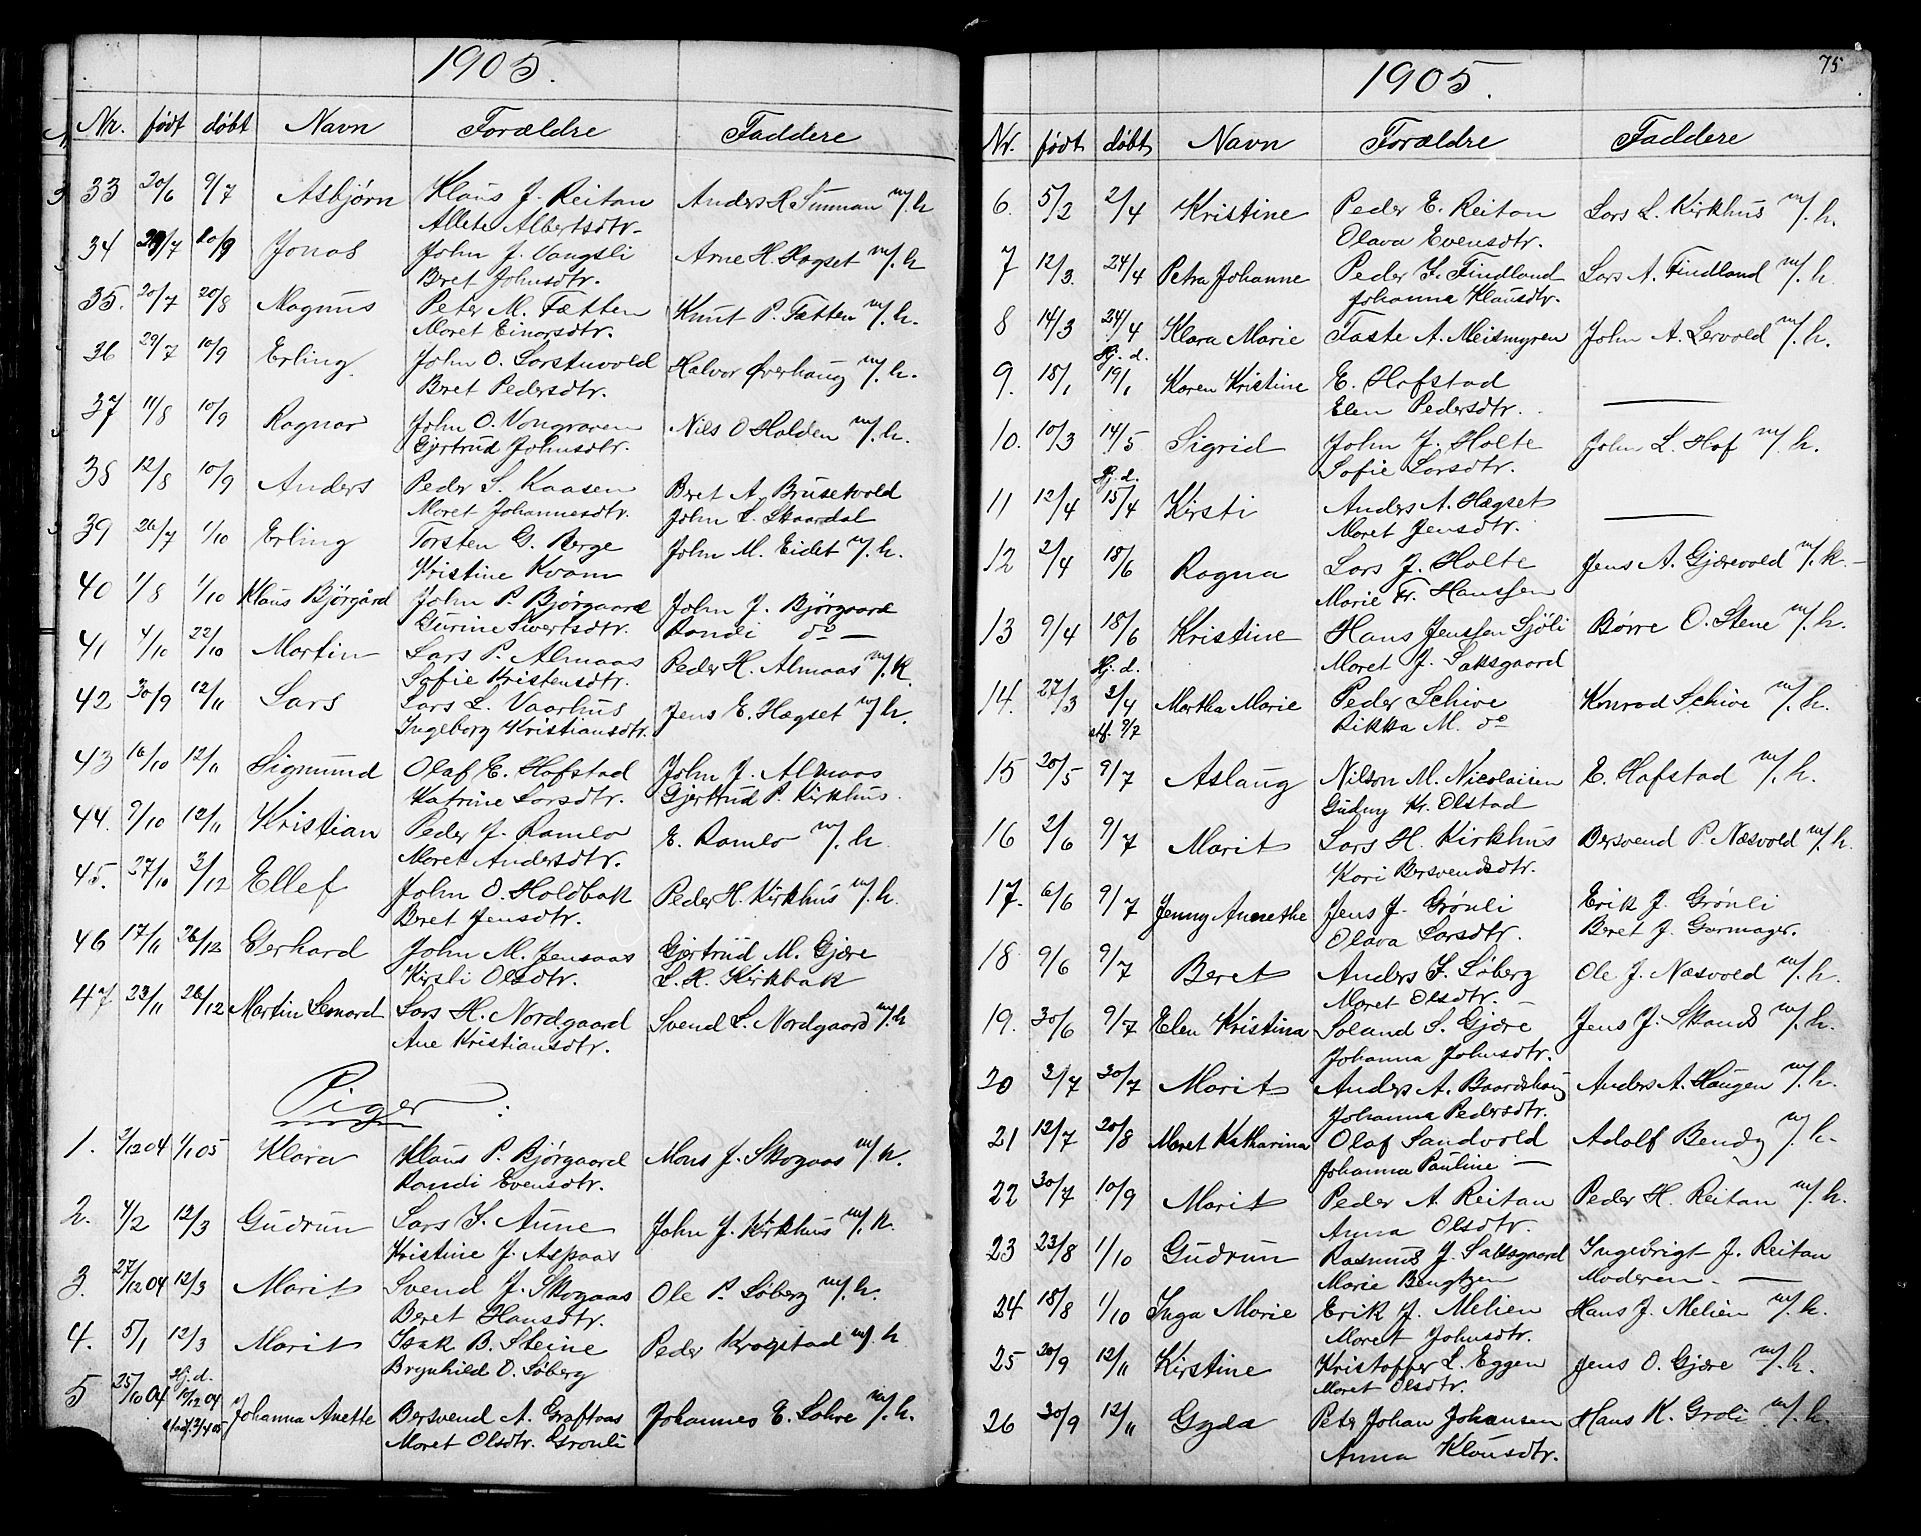 1905.
Nr. født døbt Navn Forældre Faddere
33 20/6 9/7 Asbjørn Klaus J. Reitan Anders R Sunnan m/. h
Allete Albertsdtr.
34 29/7 20/9 Jonas John J. Vangsli Arne H. Hagset m/. h
Beret Johnsdtr.
35. 20/7 20/8 Magnus Peter M. Fætten Knut P. Fætten m/. h.
Maret Einarsdtr.
36 29/7 10/9 Erling John O. Larstuvold Halvor Øverhaug m/. h.
Beret Pedersdtr.
37 11/8 10/9 Ragnar John O. Vongraven Nils O Halden m/. h.
Gjertrud Johnsdtr.
38 12/8 10/9 Anders Peder S. Kaasen Beret A. Brusetvold
Maret Johannesdtr. John L. Skaardal
39 26/7 1/10 Erling Torsten G. Berge John M. Eidet m/. h.
Kristine Kvam
40 1/8 1/10 Klaus Bjørgård John P. Bjørgaard John J. Bjørgaard
Gurine Sivertsdtr. Randi do —
41 4/10 22/10 Martin Lars P. Almaas Peder H. Almaas m/. K.
Sofie Kristensdtr.
42 30/9 12/11 Lars Lars L. Vaarhus Jens E. Hægset m/ h.
Ingeborg Kristiansdtr.
43 16/10 12/11 Sigmund Olaf E. Hofstad John J. Almaas
Katrine Larsdtr. Gjertrud P. Kirkhus.
44. 9/10 12/11 Kristian Peder J. Ramlo E. Ramlo m/. h
Maret Andersdtr.
45. 27/10 3/12 Ellef John O. Holdbak Peder H. Kirkhus m/. h.
Beret Jensdtr.
46 17/11 26/12 Gerhard John M. Jensaas Gjertrud M. Gjære
Kirsti Olsdtr. L. R. Kirkbak
47 23/11 26/12 Martin Leonard Lars H. Nordgaard Svend L. Nordgaard m/. h
Ane Kristiansdtr.
Piger :
1. 2/12 04 1/1 05 Klara Klaus P. Bjørgaard Mons J. Skogaas m/. h.
Randi Evensdtr.
2. 4/2 12/3 Gudrun Lars I. Aune John J. Kirkhus m/. h.
Kristine J. Aspaas
3. 27/12 04 12/3 Marit Svend J. Skogaas Ole P. Løberg m/. h.
Beret Hansdtr.
4. 5/1 12/3 Marit Isak B. Steine Peder Krogstad m/. h
Brynhild O. Løberg
5 25/10 04 Hj. d. 10/12 04 Johanna Anette Bersvend A. Graftaas Johannes E. Lohre m/. h.
stadf. 2/4 05 Maret Olsdtr. Gronli
75
1905.
Nr. født døbt Navn Forældre Faddere
6. 5/2 2/4 Kristine Peder E. Reitan Lars L. Kirkhus m/. h.
Olava Evensdtr.
7 12/3. 24/4 Petra Johanne Peder I. Findland Lars A. Findland m/. h.
Johanna Klausdtr.
8 14/3 24/4 Klara Marie Taste A. Meismyren John A. Lervold m/. h.
Hj. d.
9. 18/1 19/1 Karen Kristine E. Hofstad —
Elen Pedersdtr.
10. 10/3 14/5 Sigrid John J. Holte John L. Hof m/. h.
Hj. d. Sofie Larsdtr.
11 12/4 15/4 Kirsti Anders A. Hægset —
Maret Jensdtr.
12 2/4 18/6 Ragna Lars J. Holte Jens A. Gjærevold m/. k. —
Marie Fr. Hanssen
13 9/4 18/6 Kristine Hans Jenssen Sjöli Børre O. Stene m/. h.
Hj. d. Maret J. Saksgaard
14. 27/3 2/4 Martha Marie Peder Schive Konrad Schive m/. h.
stf. 9/7 Rikka M. do
15 20/5 9/7 Aslaug Nilson M. Nicolaisen E. Hofstad m/. h.
Gudny Kr. Olstad
16 2/6 9/7 Marit Lars H. Kirkhus Bersvend P. Næsvold m/. h.
Kari Bersvendsdtr.
17. 6/6 9/7 Jenny Annethe Jens J. Grönli Erik J. Grönli
Olava Larsdtr. Beret J. Garmager.
18. 9/6 9/7 Beret Anders I. Løberg Ole J. Næsvold m/. h.
Maret Olsdtr. —
19. 30/6 9/7 Elen Kristina Loland S. Gjære Jens J. Skands m/. h.
Johanna Johnsdtr.
20 2/7 30/7 Marit Anders A. Baardshaug Anders A. Haugen m/. h.
Johanna Pedersdtr.
21 12/7 20/8 Maret Katharina Olaf Sandvold Adolf Bendz m/. h-
Johanna Pauline —
22 30/7 10/9 Marit Peder A. Reitan Peder H. Reitan m/. h.
Anna Olsdtr.
23 23/8 1/10 Gudrun Rasmus J. Saksgaard Ingebrigt J. Reitan
Marie Bengtzen Moderen. —
24 18/8 1/10 Inga Marie Erik J. Melien Hans J. Melien m/. h.
Maret Johnsdtr.
25 20/9 12/11 Kirstine Kristoffer L. Eggen Jens O. Gjære m/. h.
Maret Olsdtr.
26 30/9 12/11 Gyda Peter Johan Johansen Hans K. Groli m/. h.
Anna Klausdtr.